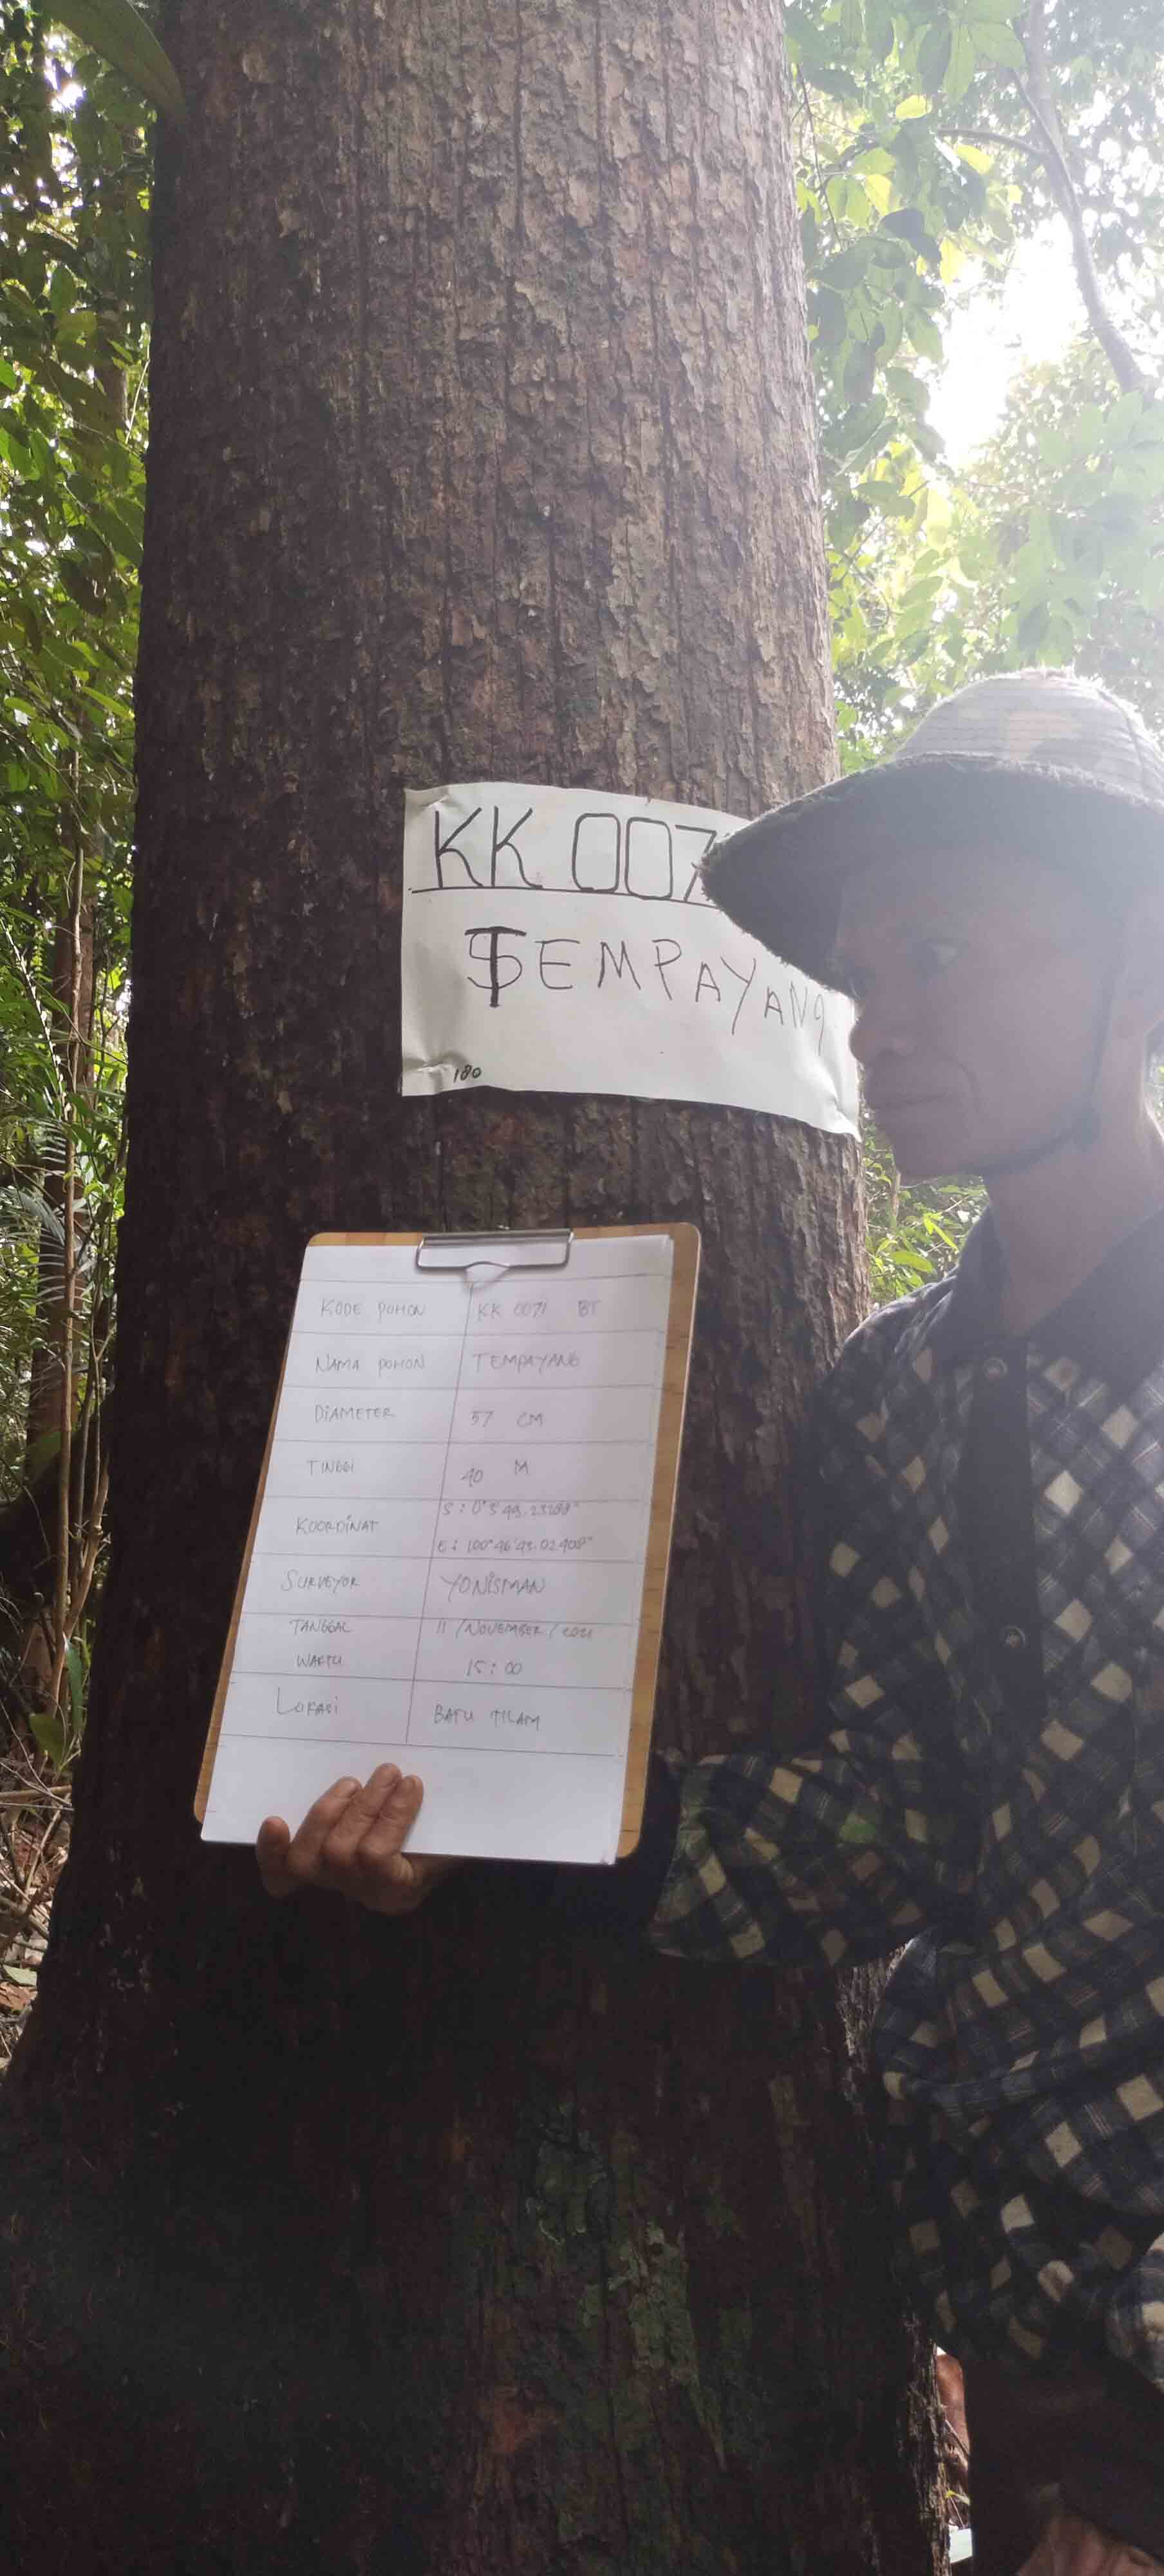 KK 007
TEMPAYANG
180
KODE POHON KK 0071 BT
NAMA POHON TEMPAYANG
DIAMETER 57 CM
TINGGI 40 M
KOORDINAT
E: 100°46'43.02408"
SURVEYOR YONISMAN
TANGGAL 11/NOVEMBER/2021
WAKTU 15:00
LOKASI BATU TILAM